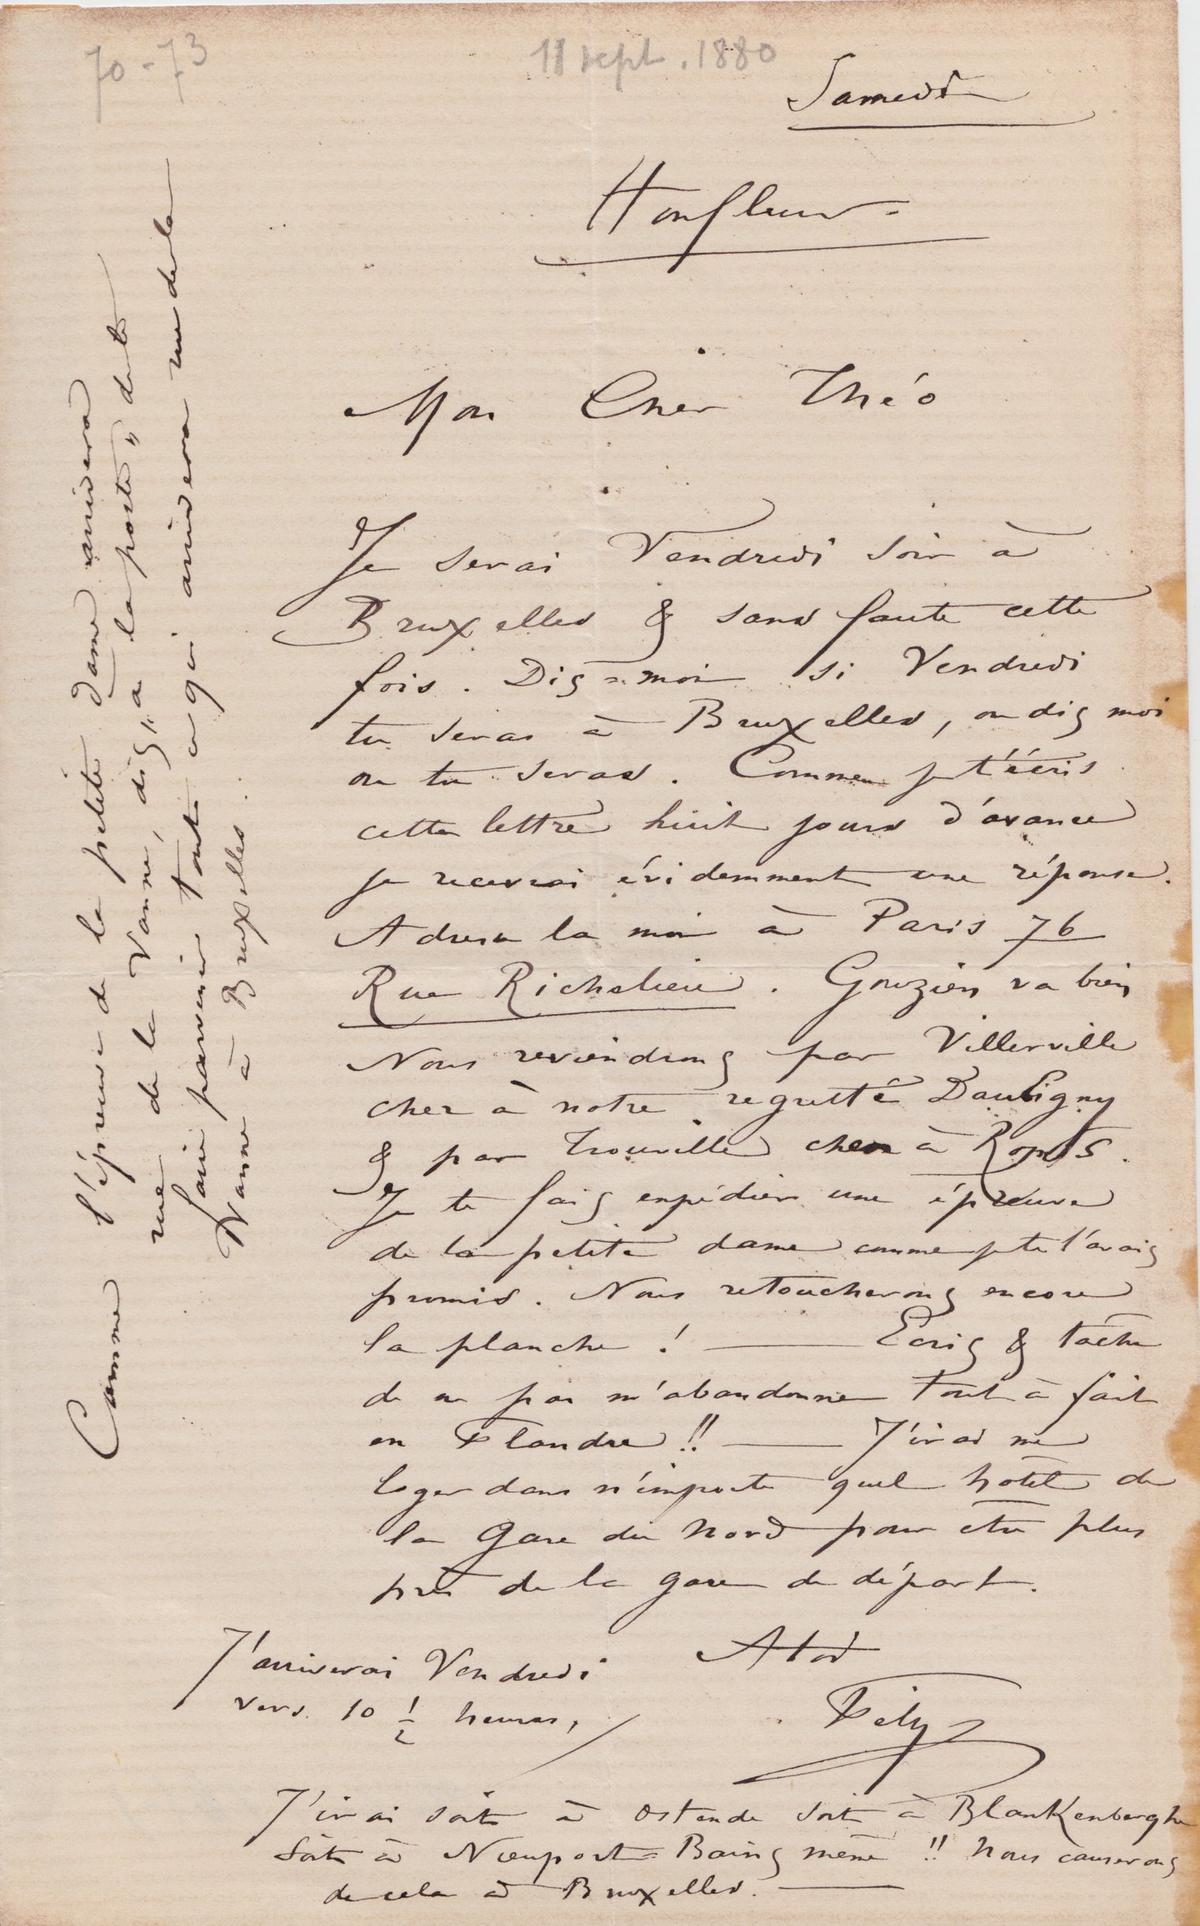 70-73
11 sept. 1880
Samedi
Honfleur.
Mon Cher Théo
Je serai Vendredi soir à
Bruxelles & sans faute cette
fois. Dis-moi si Vendredi
tu seras à Bruxelles, ou dis moi
ou tu seras. Comme je t'écris
cette lettre huit jours d'avance
je recevrai évidemment une réponse.
Adresse la moi à Paris 76
Rue Richelieu. Gouzien va bien
Nous reviendrons par Villerville
cher à notre regretté Daubigny
& par Trouville cher à Rops.
Je te fais expédier une épreuve
de la petite dame comme je te l'avais
promis. Nous retoucherons encore
la planche ! — Ecris & tâche
de ne pas m'abandonner tout à fait
en Flandre !! — J'irai me
loger dans n'importe quel hôtel de
la Gare du Nord pour être plus
près de la gare de départ.
J'arriverai Vendredi
vers 10 1/2 heures,
A toi
Fély
J'irai soit à Ostende soit à Blankenberghe
soit à Nieuport-Bains même !! Nous causerons
de cela à Bruxelles. —
Comme l'épreuve de la petite dame arrivera
rue de la Vanne, dis "à la poste" de te
faire parvenir tout ce qui arrivera rue de la
Vanne à Bruxelles.